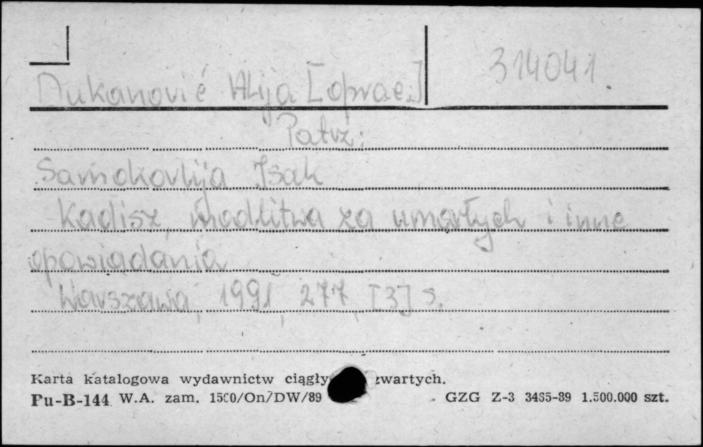 Dukanović Alija [oprac.]
314041.
Patrz:
Samokovlija Isak
Kadisz, modlitwa za umarłych i inne
opowiadania
Warszawa, 1991, 277, [3] s.
Karta katalogowa wydawnictw ciągły zwartych.
Pu-B-144 W.A. zam. 1500/On/DW/89
GZG Z-3 3485-89 1.500.000 szt.